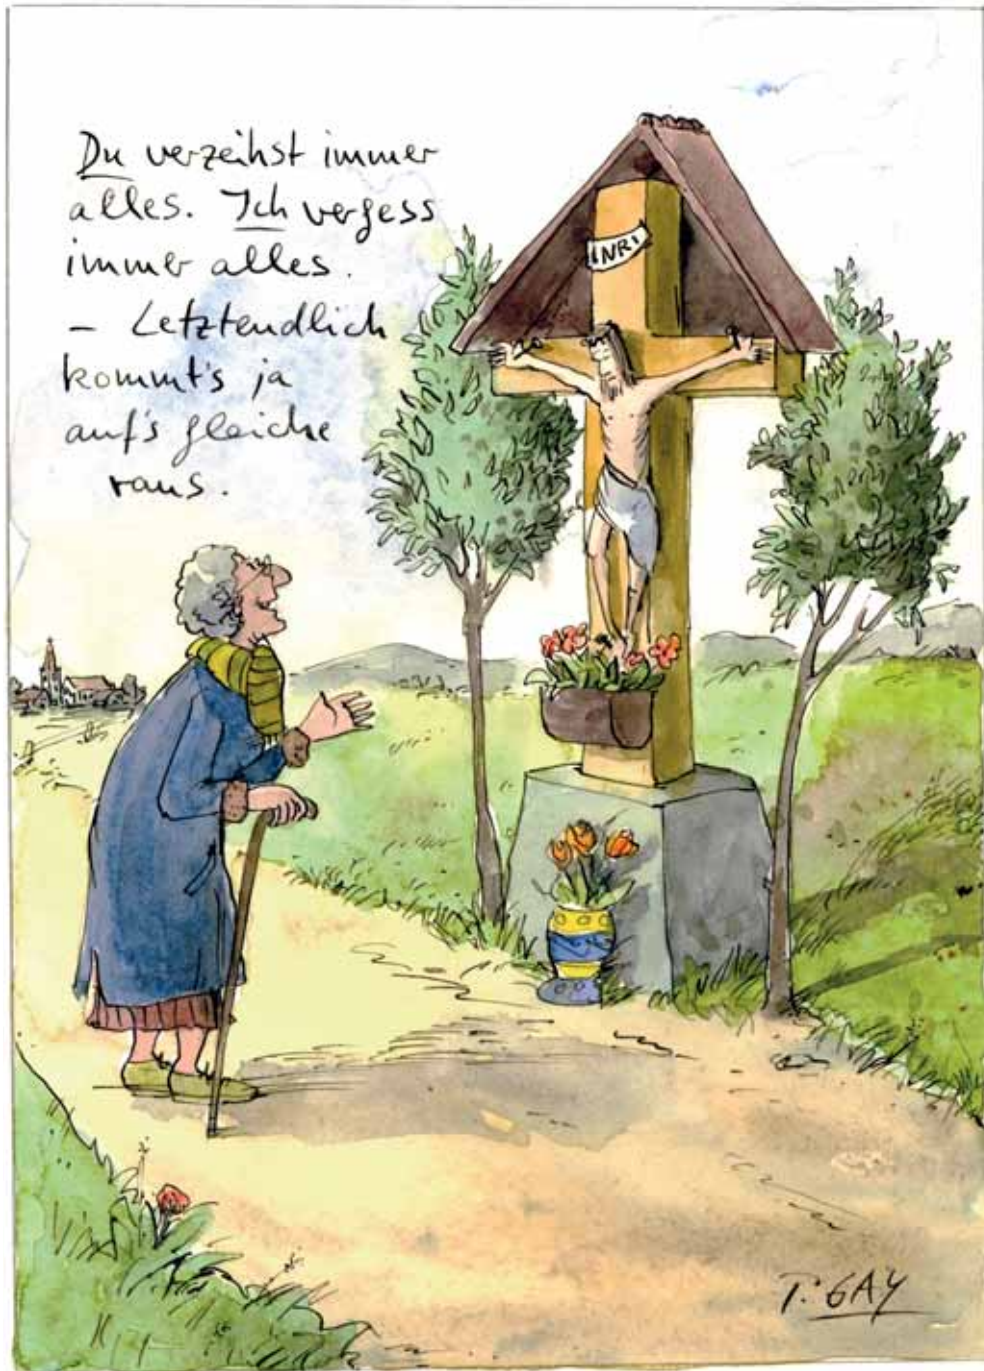 Du verzeihst immer
alles. Ich vergess
immer alles.
- Letztendlich
kommt's ja
auf's gleiche
raus.
INRI
P. GAY